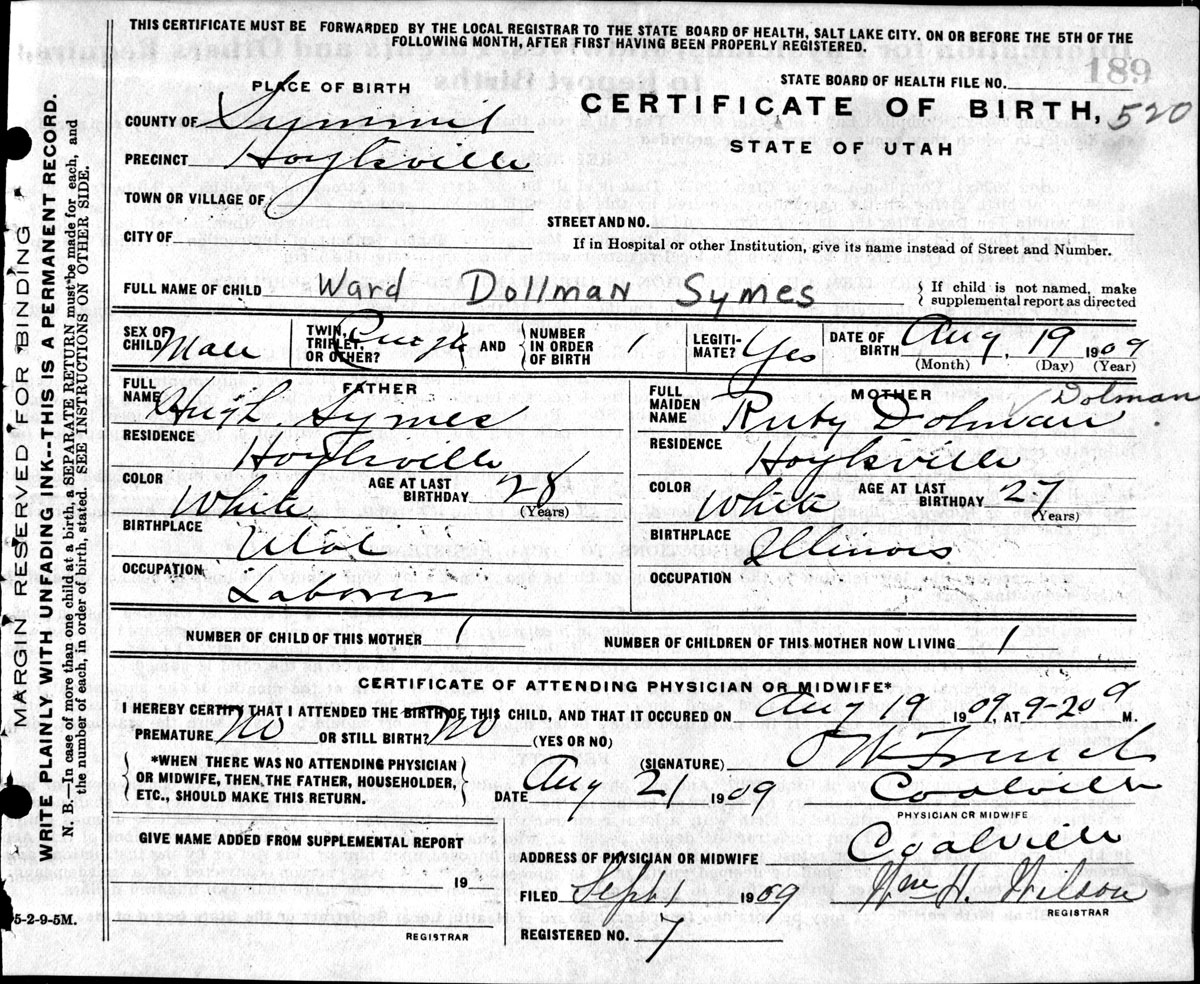 THIS CERTIFICATE MUST BE FORWARDED BY THE LOCAL REGISTRAR TO THE STATE BOARD OF HEALTH, SALT LAKE CITY. ON OR BEFORE THE 5TH OF THE
FOLLOWING MONTH, AFTER FIRST HAVING BEEN PROPERLY REGISTERED.
189
PLACE OF BIRTH
STATE BOARD OF HEALTH FILE NO.
CERTIFICATE OF BIRTH, 520
STATE OF UTAH
COUNTY OF Summit
PRECINCT Hoytsville
TOWN OR VILLAGE OF
STREET AND NO.
CITY OF
If in Hospital or other Institution, give its name instead of Street and Number.
FULL NAME OF CHILD Ward Dollman Symes
If child is not named, make supplemental report as directed
SEX OF CHILD Male
TWIN, TRIPLET, OR OTHER? Single AND NUMBER IN ORDER OF BIRTH 1
LEGITIMATE? Yes
DATE OF BIRTH Aug 19 1909
(Month) (Day) (Year)
FATHER
FULL NAME Hugh Symes
RESIDENCE Hoytsville
COLOR White AGE AT LAST BIRTHDAY 28 (Years)
BIRTHPLACE Utah
OCCUPATION Laborer
MOTHER
Dolman
FULL MAIDEN NAME Ruby Dolman
RESIDENCE Hoytsville
COLOR White AGE AT LAST BIRTHDAY 27 (Years)
BIRTHPLACE Illinois
OCCUPATION
NUMBER OF CHILD OF THIS MOTHER 1 NUMBER OF CHILDREN OF THIS MOTHER NOW LIVING 1
CERTIFICATE OF ATTENDING PHYSICIAN OR MIDWIFE*
I HEREBY CERTIFY THAT I ATTENDED THE BIRTH OF THIS CHILD, AND THAT IT OCCURED ON Aug 19 1909, AT 9-20 a M.
PREMATURE No OR STILL BIRTH? No (YES OR NO)
(SIGNATURE)
*WHEN THERE WAS NO ATTENDING PHYSICIAN
OR MIDWIFE, THEN THE FATHER, HOUSEHOLDER,
ETC., SHOULD MAKE THIS RETURN.
DATE Aug 21 1909 Coalville
PHYSICIAN OR MIDWIFE
GIVE NAME ADDED FROM SUPPLEMENTAL REPORT
19
REGISTRAR
ADDRESS OF PHYSICIAN OR MIDWIFE Coalville
FILED Sept 1 1909 Wm H. Wilson
REGISTRAR
REGISTERED NO. 7
MARGIN RESERVED FOR BINDING
WRITE PLAINLY WITH UNFADING INK--THIS IS A PERMANENT RECORD.
N. B.--In case of more than one child at a birth, a SEPARATE RETURN must be made for each, and
the number of each, in order of birth, stated. SEE INSTRUCTIONS ON OTHER SIDE.
5-2-9-5M.